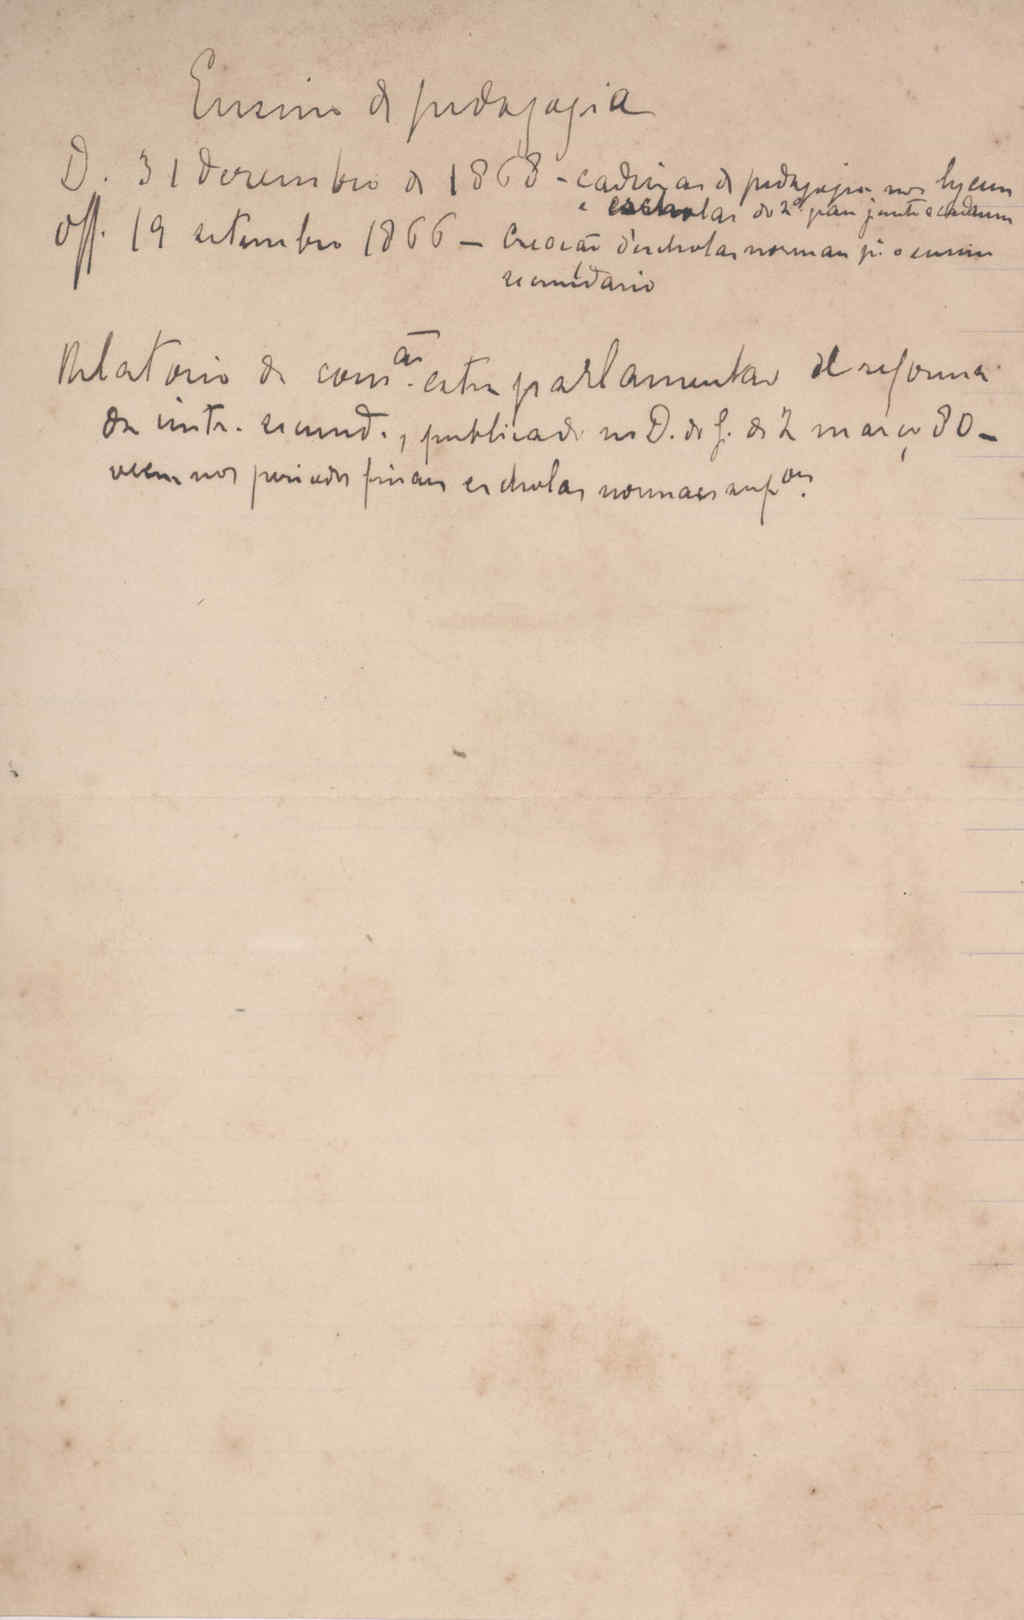 Ensino de pedagogia
D. 31 dezembro de 1868 - cadeiras de pedagogia nos lyceus
e escholas do 2º grau junto a
Off. 19 setembro 1866 - Creacão d'escholas normaes pª. o ensino
secundario
Relatorio da comᵃᵒ. extra parlamentar de reforma
da instr. secund., publicado no D. do G. de 2 março 80 -
veem nos periodos finaes escholas normaes supᵒʳ.